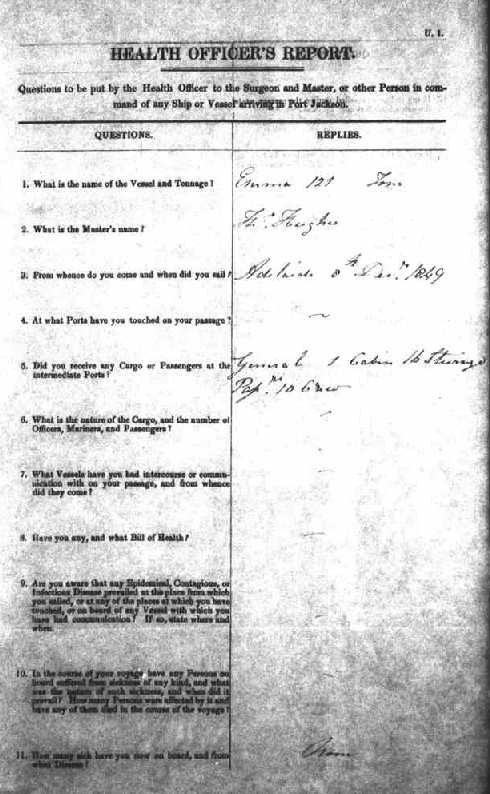 U. 1.
HEALTH OFFICER'S REPORT.
Questions to be put by the Health Officer to the Surgeon and Master, or other Person in com-
mand of any Ship or Vessel arriving in Port Jackson.
QUESTIONS. REPLIES.
1. What is the name of the Vessel and Tonnage? Emma 121 Tons
2. What is the Master's name? Hughes
3. From whence do you come and when did you sail? Adelaide 8th Decr. 1849
4. At what Ports have you touched on your passage? ~
5. Did you receive any Cargo or Passengers at the General 1 Cabin 16 Steerage
intermediate Ports? 10 Crew
6. What is the nature of the Cargo, and the number of
Officers, Mariners, and Passengers?
7. What Vessels have you had intercourse or commu-
nication with on your passage, and from whence
did they come?
8. Have you any, and what Bill of Health?
9. Are you aware that any Epidemical, Contagious, or
Infectious Disease prevailed at the place from which
you sailed, or at any of the places at which you have
touched, or on board of any Vessel with which you
have had communication? If so, state where and
when.
10. In the course of your voyage have any Persons on
board suffered from sickness of any kind, and what
was the nature of such sickness, and when did it
prevail? How many Persons were affected by it and
have any of them died in the course of the voyage?
11. How many sick have you now on board, and from None
what Disease?